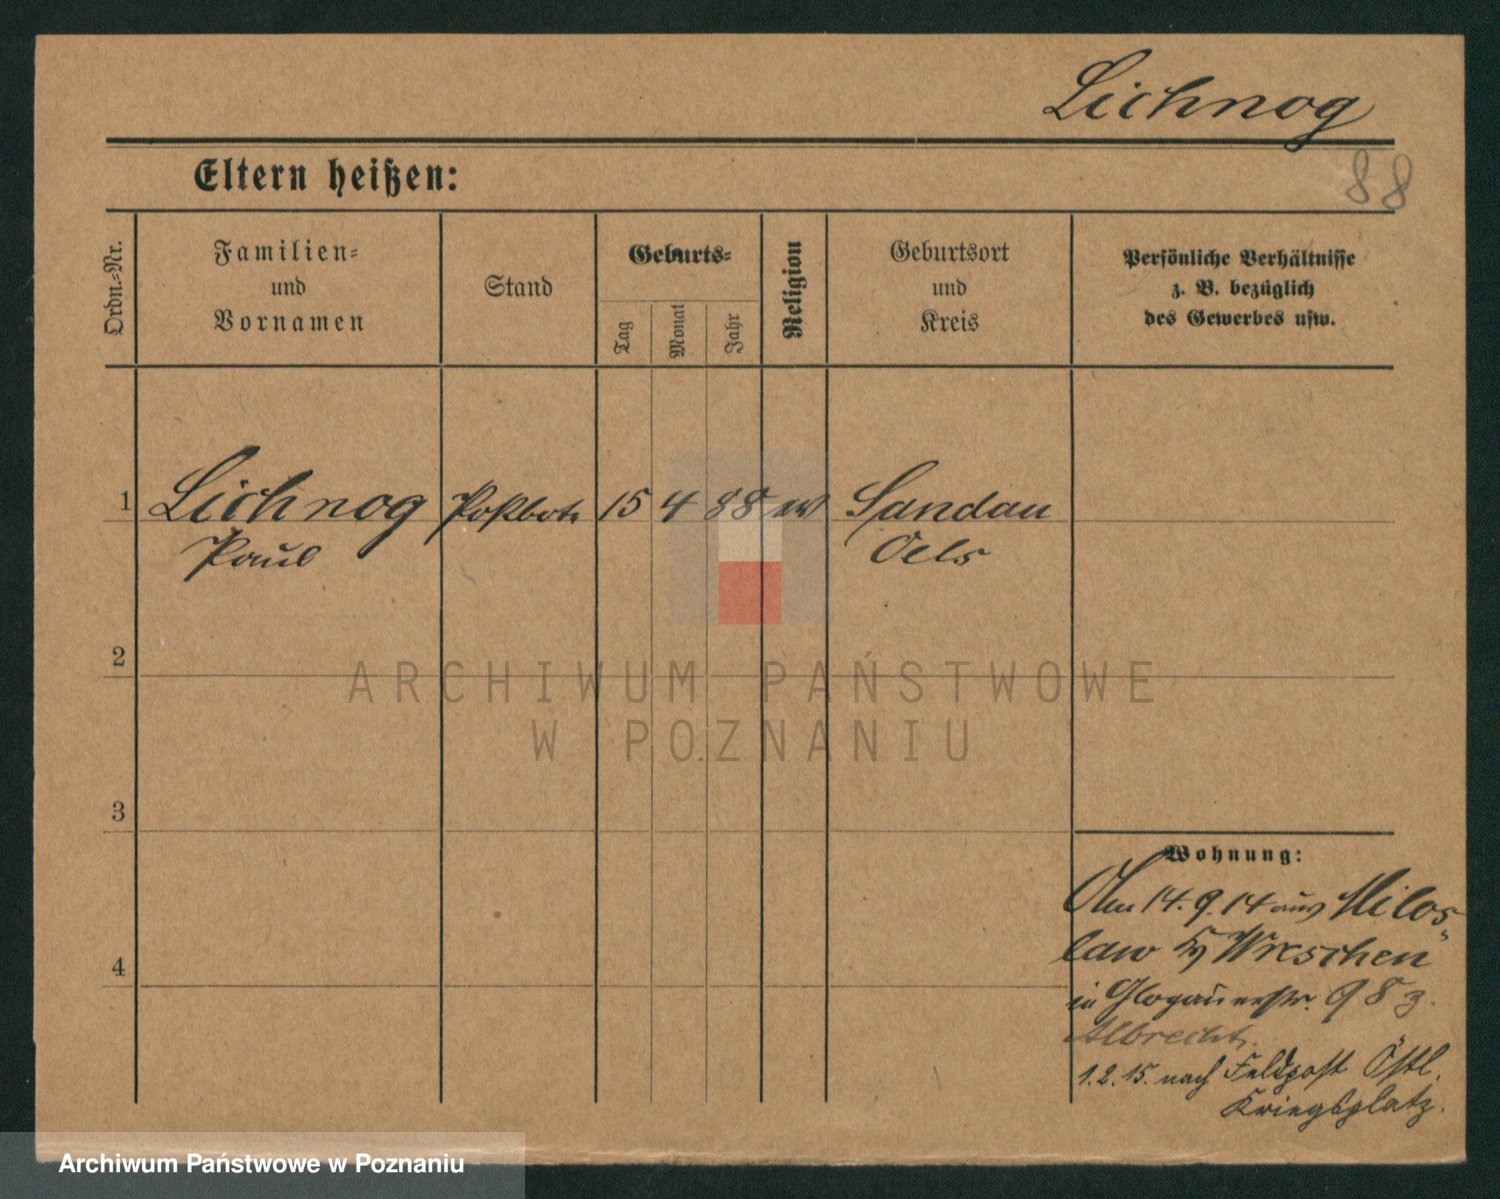 Lichnog
88
Eltern heißen:
Ordn.-Nr.
Familien-
und
Vornamen
Stand
Geburts-
Tag
Monat
Jahr
Religion
Geburtsort
und
Kreis
Persönliche Verhältnisse
z. B. bezüglich
des Gewerbes usw.
1 Lichnog Postbote 15 4 88 ev Sandau
Paul Oels
2
3
4
Wohnung:
Am 14.9.14 aus Milos-
law Kr Wreschen
in Glogauerstr. 98 z.
Albrecht.
1.2.15. nach Feldpost Östl.
Kriegsplatz.
ARCHIWUM PAŃSTWOWE
W POZNANIU
Archiwum Państwowe w Poznaniu